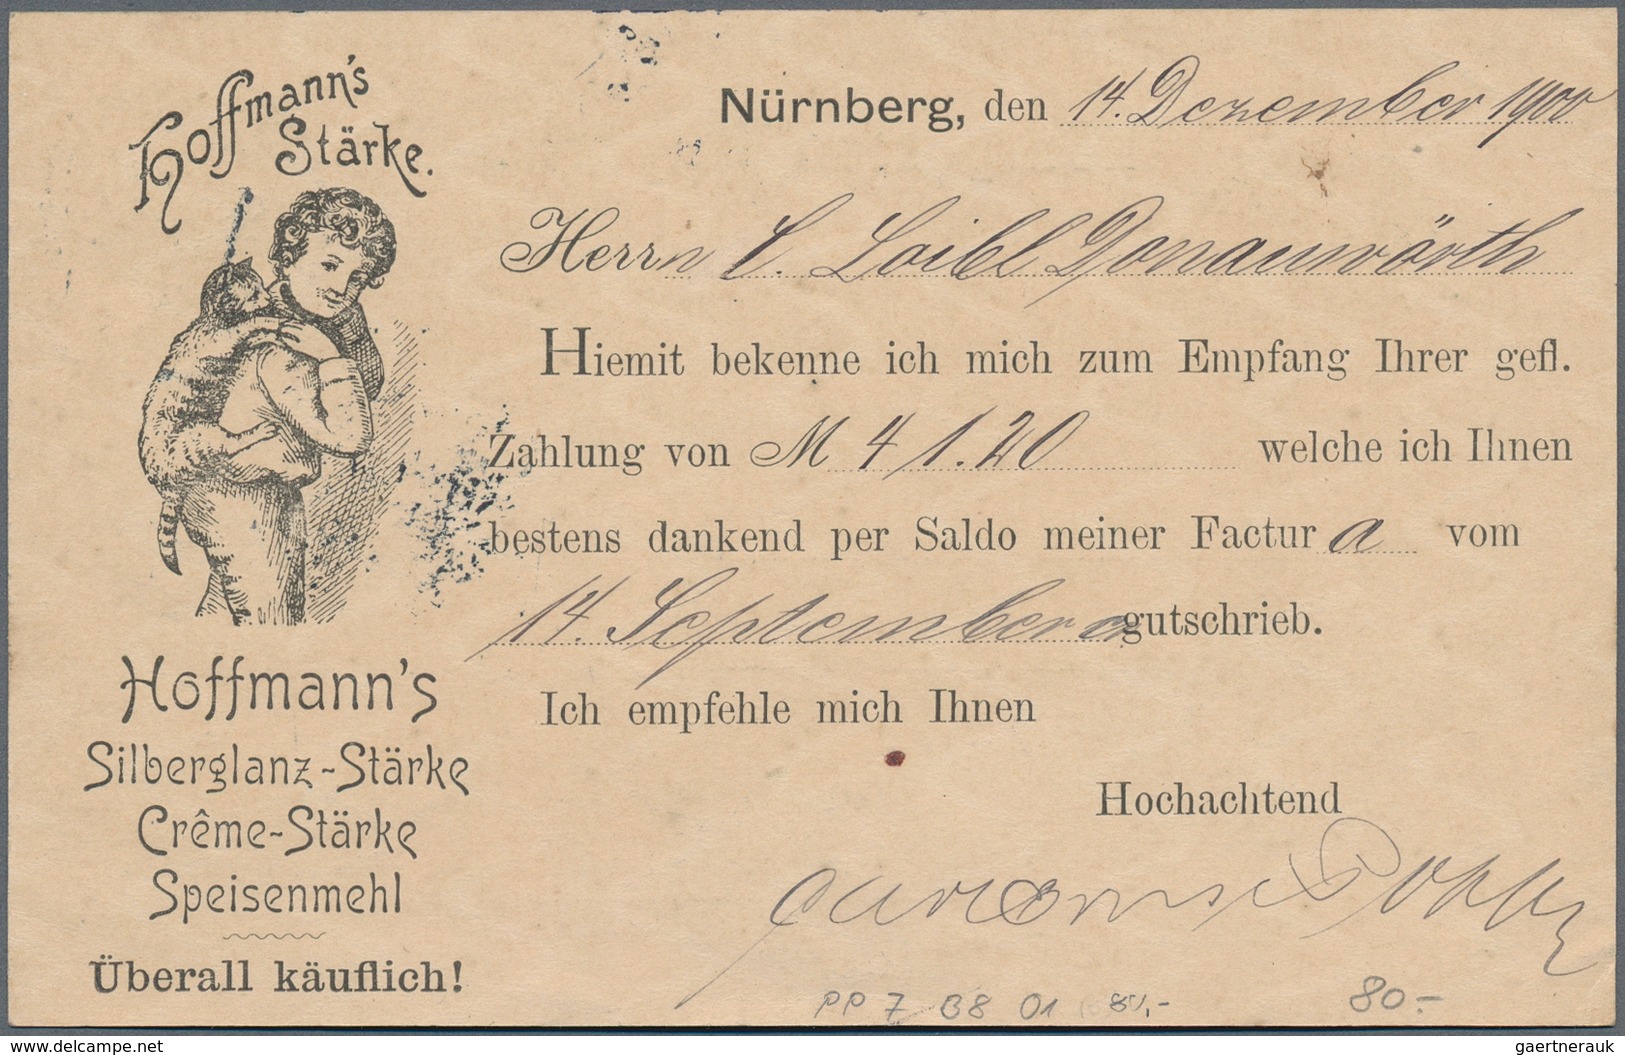 Hoffmann's
Stärke.
Nürnberg, den 14. Dezember 1900
Herrn L. Loibl Donauwörth
Hiemit bekenne ich mich zum Empfang Ihrer gefl.
Zahlung von M 41.20 welche ich Ihnen
bestens dankend per Saldo meiner Factur a vom
14. September gutschrieb.
Ich empfehle mich Ihnen
Hochachtend
Hoffmann's
Silberglanz-Stärke
Crême-Stärke
Speisenmehl
Überall käuflich!
PP 7 B8 01 80,-
80.-
www.delcampe.net
gaertnerauk